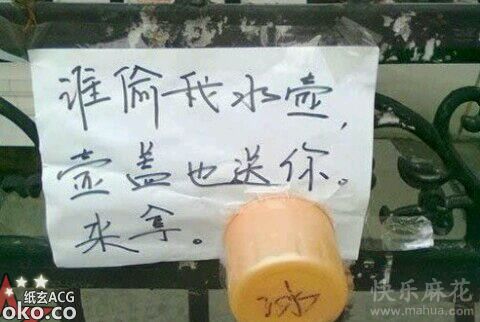 谁偷我水壶，
壶盖也送你。
来拿。
纸玄ACG
oko.co
快乐麻花
www.mahua.com